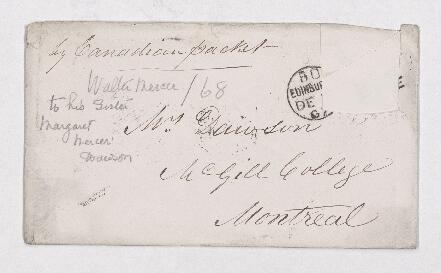 by Canadian packet
Walter Mercer / 68
to his Sister
Margaret
Mercer
Dawson
EDINBUR
DE
Mrs Dawson
McGill College
Montreal